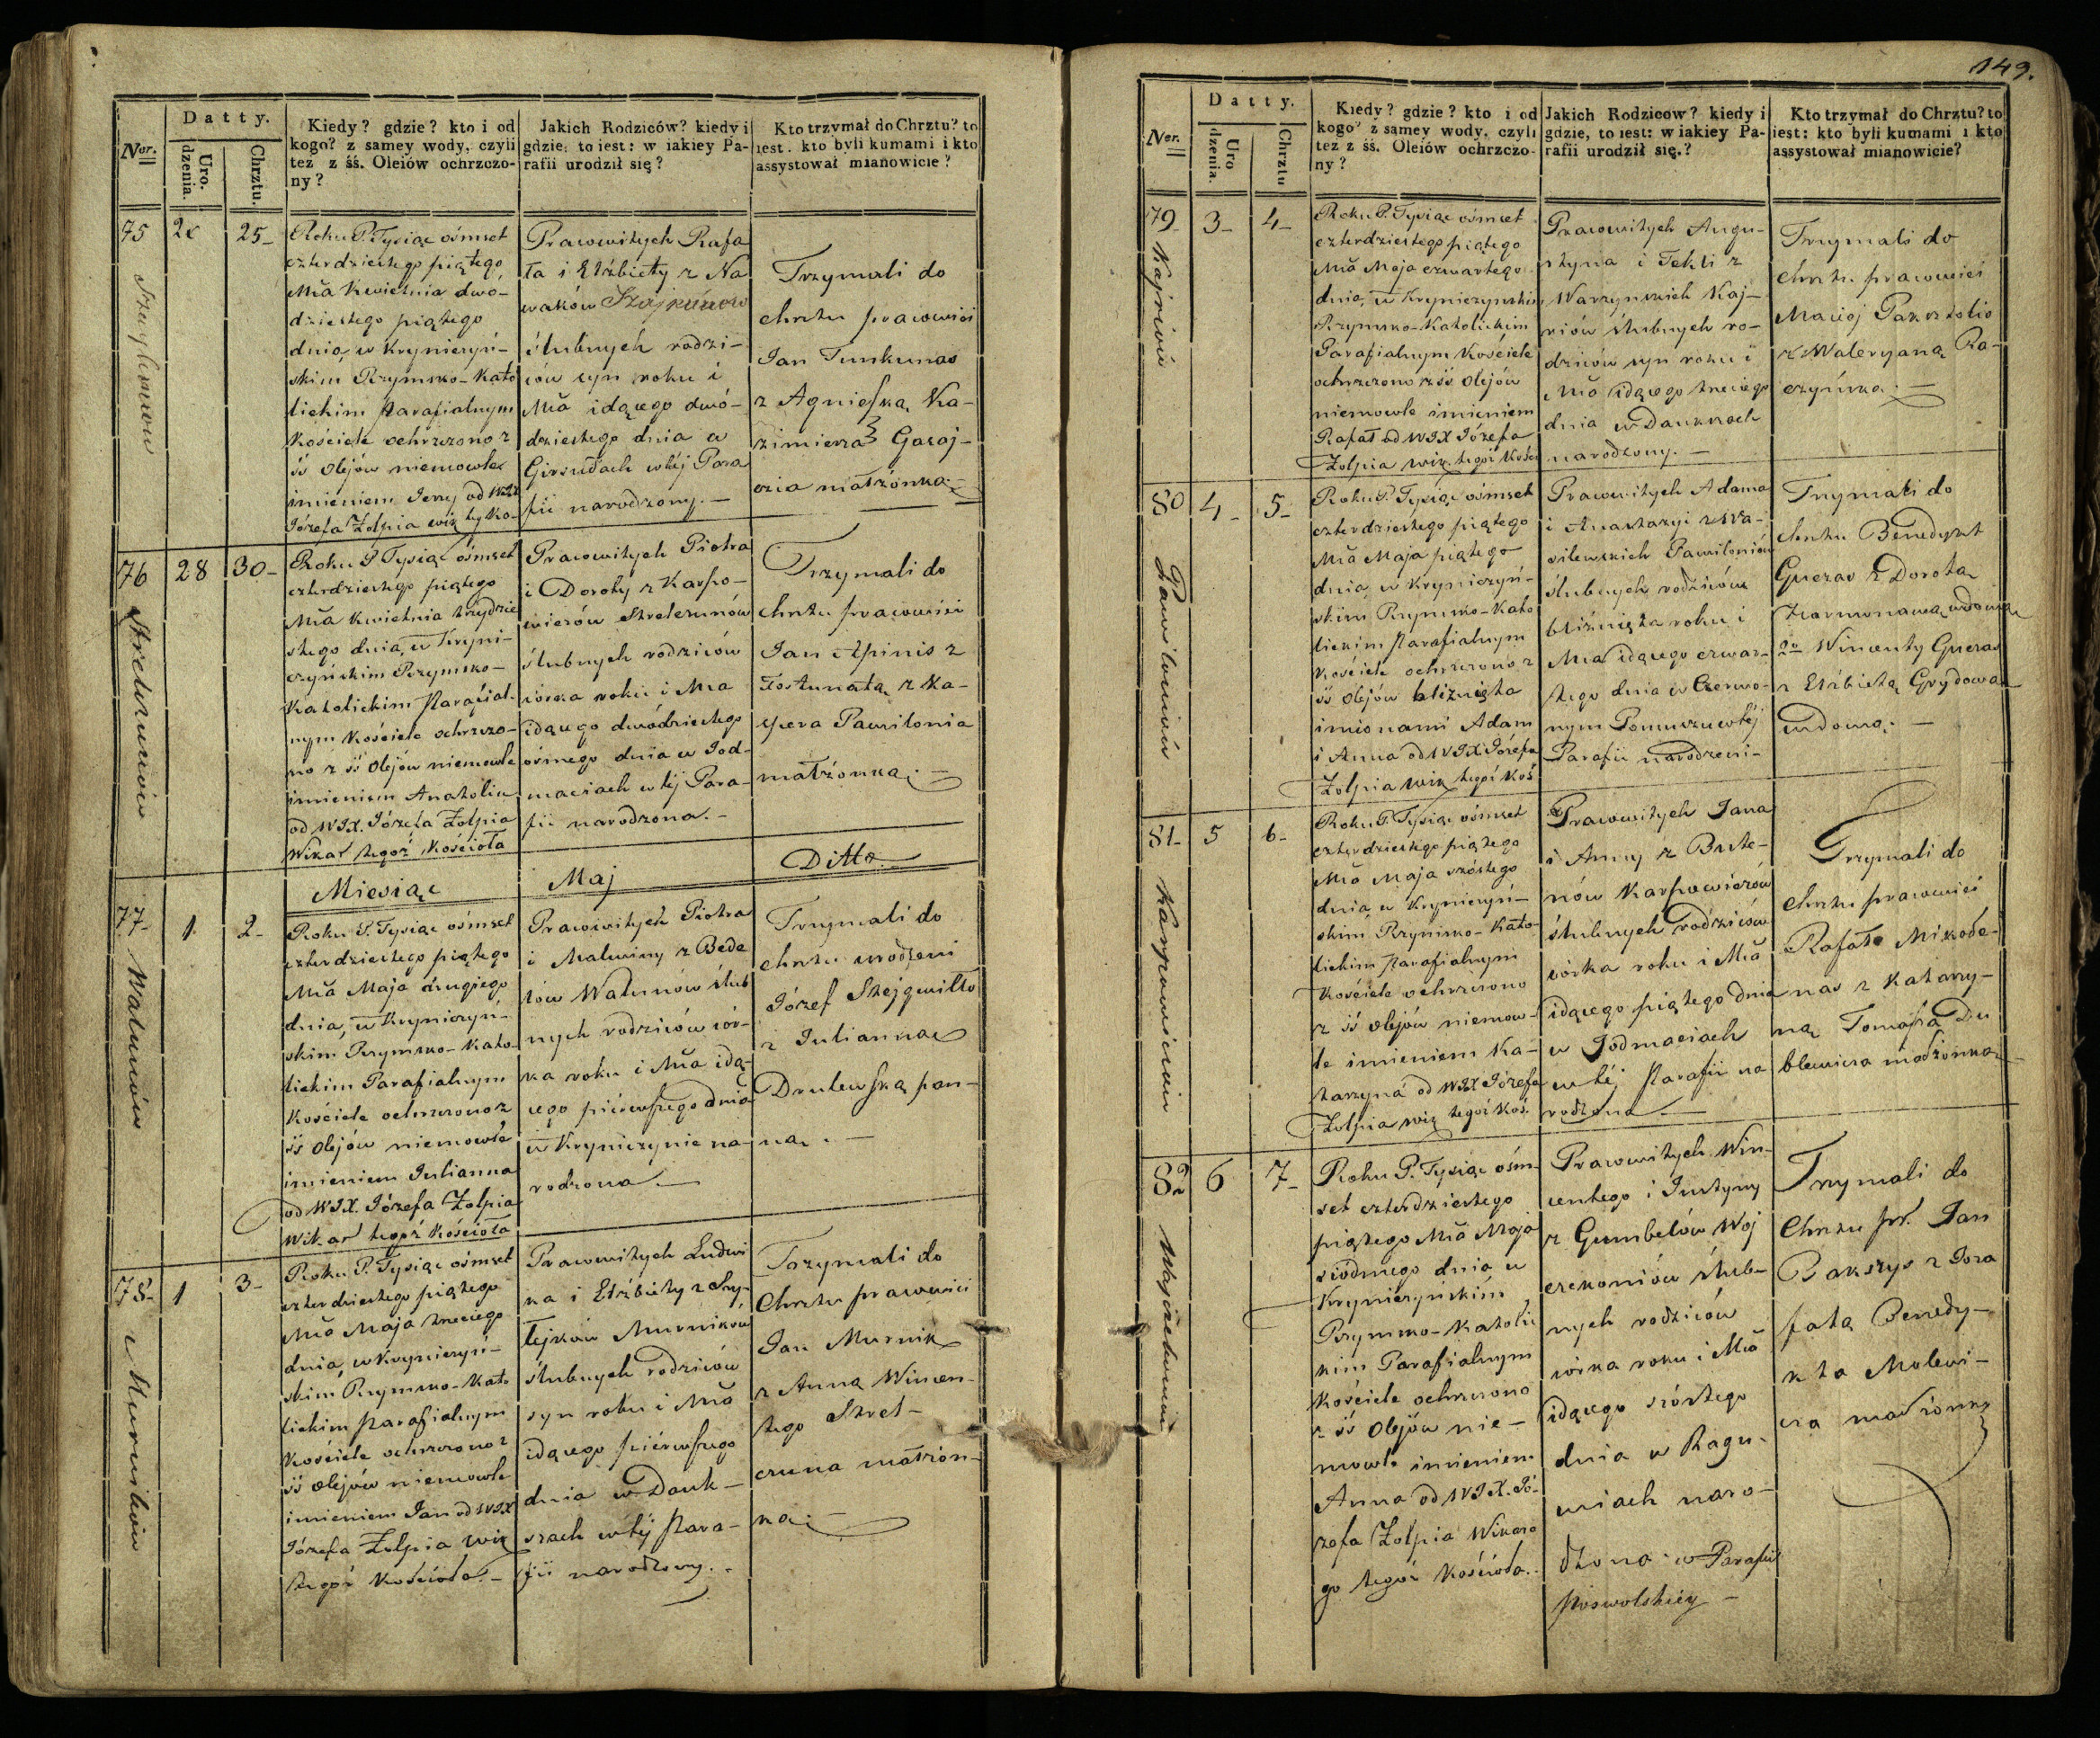 Datty.
Nor.
Uro.
dzenia.
Chrztu.
Kiedy? gdzie? kto i od
kogo? z samey wody, czyli
też z śś. Oleiów ochrzczo-
ny?
Jakich Rodziców? kiedy i
gdzie, to iest: w iakiey Pa-
rafii urodził się?
Kto trzymał do Chrztu? to
iest. kto byli kumami i kto
assystował mianowicie?
75
25-
Roku P. Tysiąc ośmset
czterdziestego piątego
Mca Kwietnia dwó-
dziestego piątego
dnia, w Kryniczyń-
skim Rzymsko-Kato
lickim Parafialnym
Kościele ochrzczono z
śś Olejów niemowle
imieniem Jerzy od WJX
Józefa Żołpia wik tego Ko-
Prawowitych Rafa
ła i Elżbiety z No
waków
ślubnych rodzi-
ców syn roku i
Mca idącego dwó-
dziestego dnia w
w téj Para
fii narodzony.-
Trzymali do
chrztu prawowici
Jan Tunkunas
z Agnieszką Ka-
zimierza Gasaj-
cia małżonką.-
76
Strelczunów
28
30-
Roku P Tysiąc ośmset
czterdziestego piątego
Mca Kwietnia trzydzie
stego dnia, w Kryni-
czyńskim Rzymsko-
Katolickim Parafial-
nym Kościele ochrzczo-
no z śś Olejów niemowle
imieniem Anatolia
od WJX. Józefa Żołpia
Wikar tegoż Kościoła
Prawowitych Piotra
i Doroty z Karpo-
wiczów Strelczunów
ślubnych rodziców
córka roku i Mca
idącego dwódziestego
ósmego dnia w Jod-
maciach w téj Para-
fii narodzona.-
Trzymali do
chrztu prawowici
Jan Apinis z
Fortunatą z Ka-
spera Pawilonia
małżonką.-
Miesiąc
Maj
Ditto
77-
Walunów
1
2-
Roku P. Tysiąc ośmset
czterdziestego piątego
Mca Maja drugiego
dnia, w Kryniczyń-
skim Rzymsko-Kato-
lickim Parafialnym
Kościele ochrzczono z
śś Olejów niemowle
imieniem Julianna
od WJX. Józefa Żołpia
Wikar tegoż Kościoła
Prawowitych Piotra
i Malwiny z Bede
lów Walunów ślub
nych rodziców cór-
ka roku i Mca idą-
cego piérwszego dnia
w Kryniczynie na-
rodzona.-
Trzymali do
chrztu urodzeni
Józef Stejgwiłło
z Julianną
Drulewską pan-
ną.-
78-
Murników
1
3-
Roku P. Tysiąc ośmset
czterdziestego piątego
Mca Maja trzeciego
dnia, w Kryniczyń-
skim Rzymsko-Kato
lickim Parafialnym
Kościele ochrzczono z
śś Olejów niemowle
imieniem Jan od WJX
Józefa Żołpia Wik
tegoż Kościoła.-
Prawowitych Ludwi
ka i Elżbiety z
Murników
ślubnych rodziców
syn roku i Mca
idącego piérwszego
dnia w Dauk-
szach w téj Para-
fii narodzony.
Trzymali do
Chrztu prawowici
Jan Murnik
z Anną Wincen-
tego Strel-
czuna małżon-
ką.-
149.
Datty.
Nor.
Uro
dzenia.
Chrztu
Kiedy? gdzie? kto i od
kogo? z samey wody, czyli
też z śś. Oleiów ochrzczo-
ny?
Jakich Rodziców? kiedy i
gdzie, to iest: w iakiey Pa-
rafii urodził się.?
Kto trzymał do Chrztu? to
iest: kto byli kumami i kto
assystował mianowicie?
79
Kajriów
3-
4-
Roku P. Tysiąc ośmset
czterdziestego piątego
Mca Maja czwartego
dnia, w Krynieczyńskim
Rzymsko-Katolickim
Parafialnym Kościele
ochrzczono z śś Olejów
niemowle imieniem
Rafał od WJX Józefa
Żołpia wik. tegoż Kości
Prawowitych Augu-
styna i Tekli z
Warzyńskich Kaj-
riów ślubnych ro-
dziców syn roku i
Mca idącego trzeciego
dnia w Daukszach
narodzony.-
Trzymali do
chrztu prawowici
Maciej Paksztolis
z Waleryaną Ra-
czyńską.-
80
Pawiloniów
4-
5-
Roku P. Tysiąc ośmset
czterdziestego piątego
Mca Maja piątego
dnia, w Krynieczyń-
skim Rzymsko-Kato
lickim Parafialnym
Kościele ochrzczono z
śś Olejów bliźnięta
imionami Adam
i Anna od WJX Józefa
Żołpia wik tegoż Koś
Prawowitych Adama
i Anastazyi z Wa-
silewskich Pawiloniów
ślubnych rodziców
bliźnięta roku i
Mca idącego czwar-
tego dnia w Czerwo-
nym Pomuszu w téj
Parafii narodzeni-
Trzymali do
chrztu Benedykt
Guezas z Dorotą
wdową
2o Wincenty Guezas
z Elżbietą Grydową
wdową.-
81-
Karpowiczów
5
6-
Roku P. Tysiąc ośmset
czterdziestego piątego
Mca Maja szóstego
dnia, w Krynieczyń-
skim Rzymsko-Kato-
lickim Parafialnym
Kościele ochrzczono
z śś Olejów niemow-
le imieniem Ka-
tarzyna od WJX Józefa
Żołpia wik tegoż Koś.
Prawowitych Jana
i Anny z Bute-
nów Karpowiczów
ślubnych rodziców
córka roku i Mca
idącego piątego dnia
w Jodmaciach
w téj Parafii na
rodzona-
Trzymali do
chrztu prawowici
Rafał Mikode-
nas z Katarzy-
ną Tomasza Du
blewicza małżonką-
82
6
7-
Roku P. Tysiąc ośm-
set czterdziestego
piątego Mca Maja
siódmego dnia w
Krynieczyńskim
Rzymsko-Katolic
kim Parafialnym
Kościele ochrzczono
z śś Olejów nie-
mowle imieniem
Anna od WJX. Jó-
zefa Żołpia Wikare
go tegoż Kościoła.
Prawowitych Win-
centego i Justyny
z Gumbelów Woj
czekoniów ślub-
nych rodziców
córka roku i Mca
idącego szóstego
dnia w Ragu-
wiach naro-
dzona w Parafii
Poswolskiéy-
Trzymali do
Chrztu pr. Jan
Bakszys z Joza
fatą Benedy-
kta Malewi-
cza małżonką